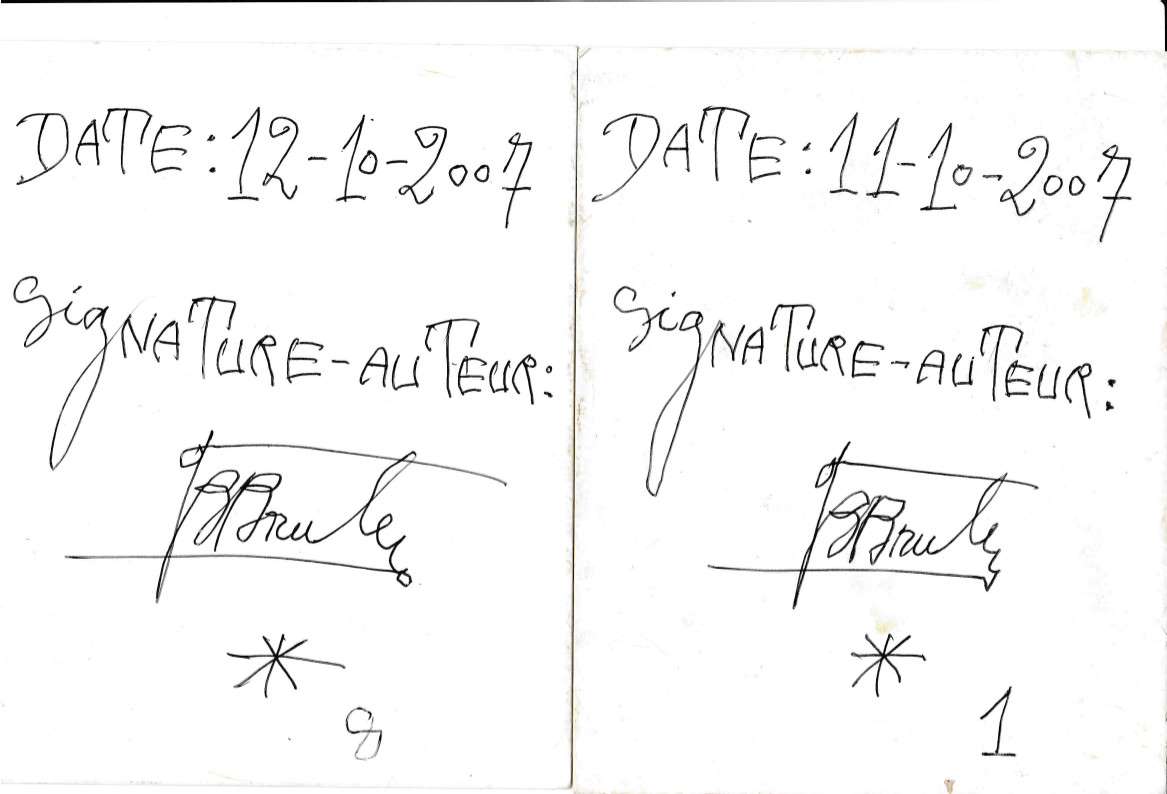 DATE: 12-10-2007
SIGNATURE-AUTEUR:
8
DATE: 11-10-2007
SIGNATURE-AUTEUR:
1